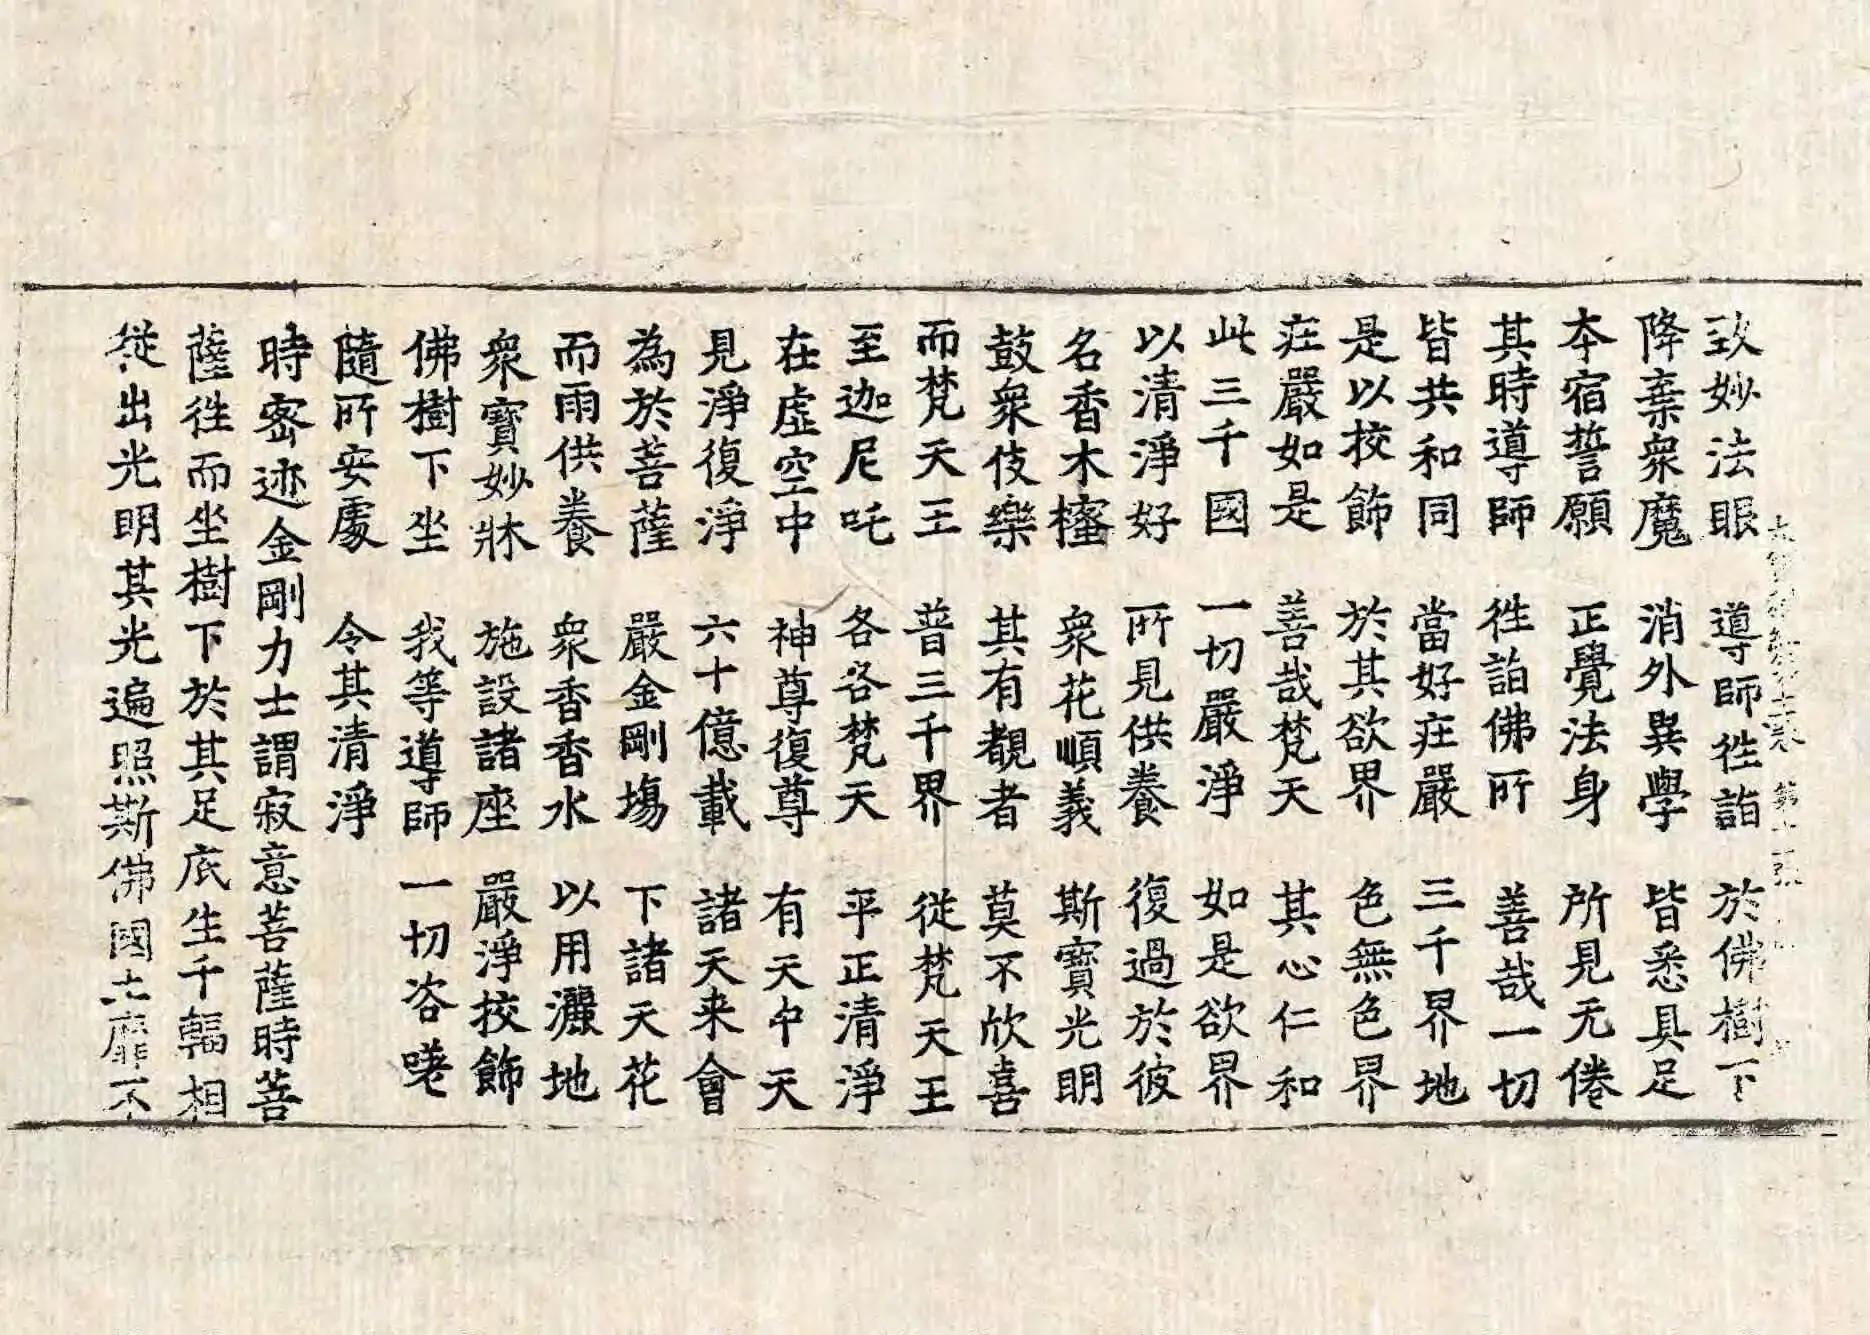 致妙法眼 導師徃詣 於佛樹下
降棄衆魔 消外異學 皆悉具足
本宿誓願 正覺法身 所見无倦
其時導師 徃詣佛所 善哉一切
皆共和同 當好莊嚴 三千界地
是以挍飾 於其欲界 色無色界
莊嚴如是 善哉梵天 其心仁和
此三千國 一切嚴淨 如是欲界
以清淨好 所見供養 復過於彼
名香木櫁 衆花順義 斯寶光明
鼓衆伎樂 其有覩者 莫不欣喜
而梵天王 普三千界 從梵天王
至迦尼吒 各各梵天 平正清淨
在虛空中 神尊復尊 有天中天
見淨復淨 六十億載 諸天来會
為於菩薩 嚴金剛塲 下諸天花
而雨供養 衆香香水 以用灑地
衆寶妙牀 施設諸座 嚴淨挍飾
佛樹下坐 我等導師 一切咨嗟
隨所安處 令其清淨
時密迹金剛力士謂寂意菩薩時菩
薩徃而坐樹下於其足底生千輻相
從出光明其光遍照斯佛國土靡不